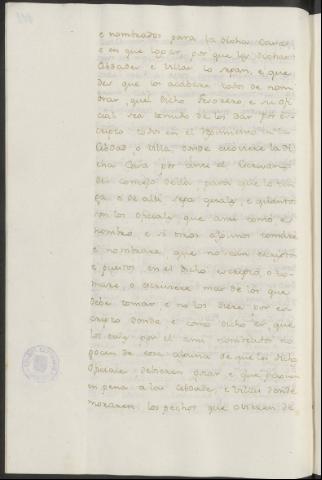 e nombrados para la dicha Casa,
e en que logar, por que las dichas
Cibdades e Villas lo sepan, e que
des que los acabare todos de nom
brar, quel dicho Tesorero e su ofi
cial sea tenudo de los dar por es
cripto todos en el
Cibdad, o Villa donde estoviere la di
cha Casa, por ante el Escrivano
del concejo della, para que lo ten
ga e de alli sepa quales, e quantos
son los oficiales que ansi tomó e
nombró, e si otros algunos tomáre
e nombrare, que no sean escriptos
e puestos en el dicho escripto, o to
mare, o escriviere mas de los que
debe tomar, e no los diere por es
cripto donde e como dicho es, que
los tales por el ansi nombrados no
gocen de cosa alguna de que los dichos
Oficiales debieren gozar, e que paguen
en pena a las Cibdades, e Villas donde
moraren, los pechos que ovieren de